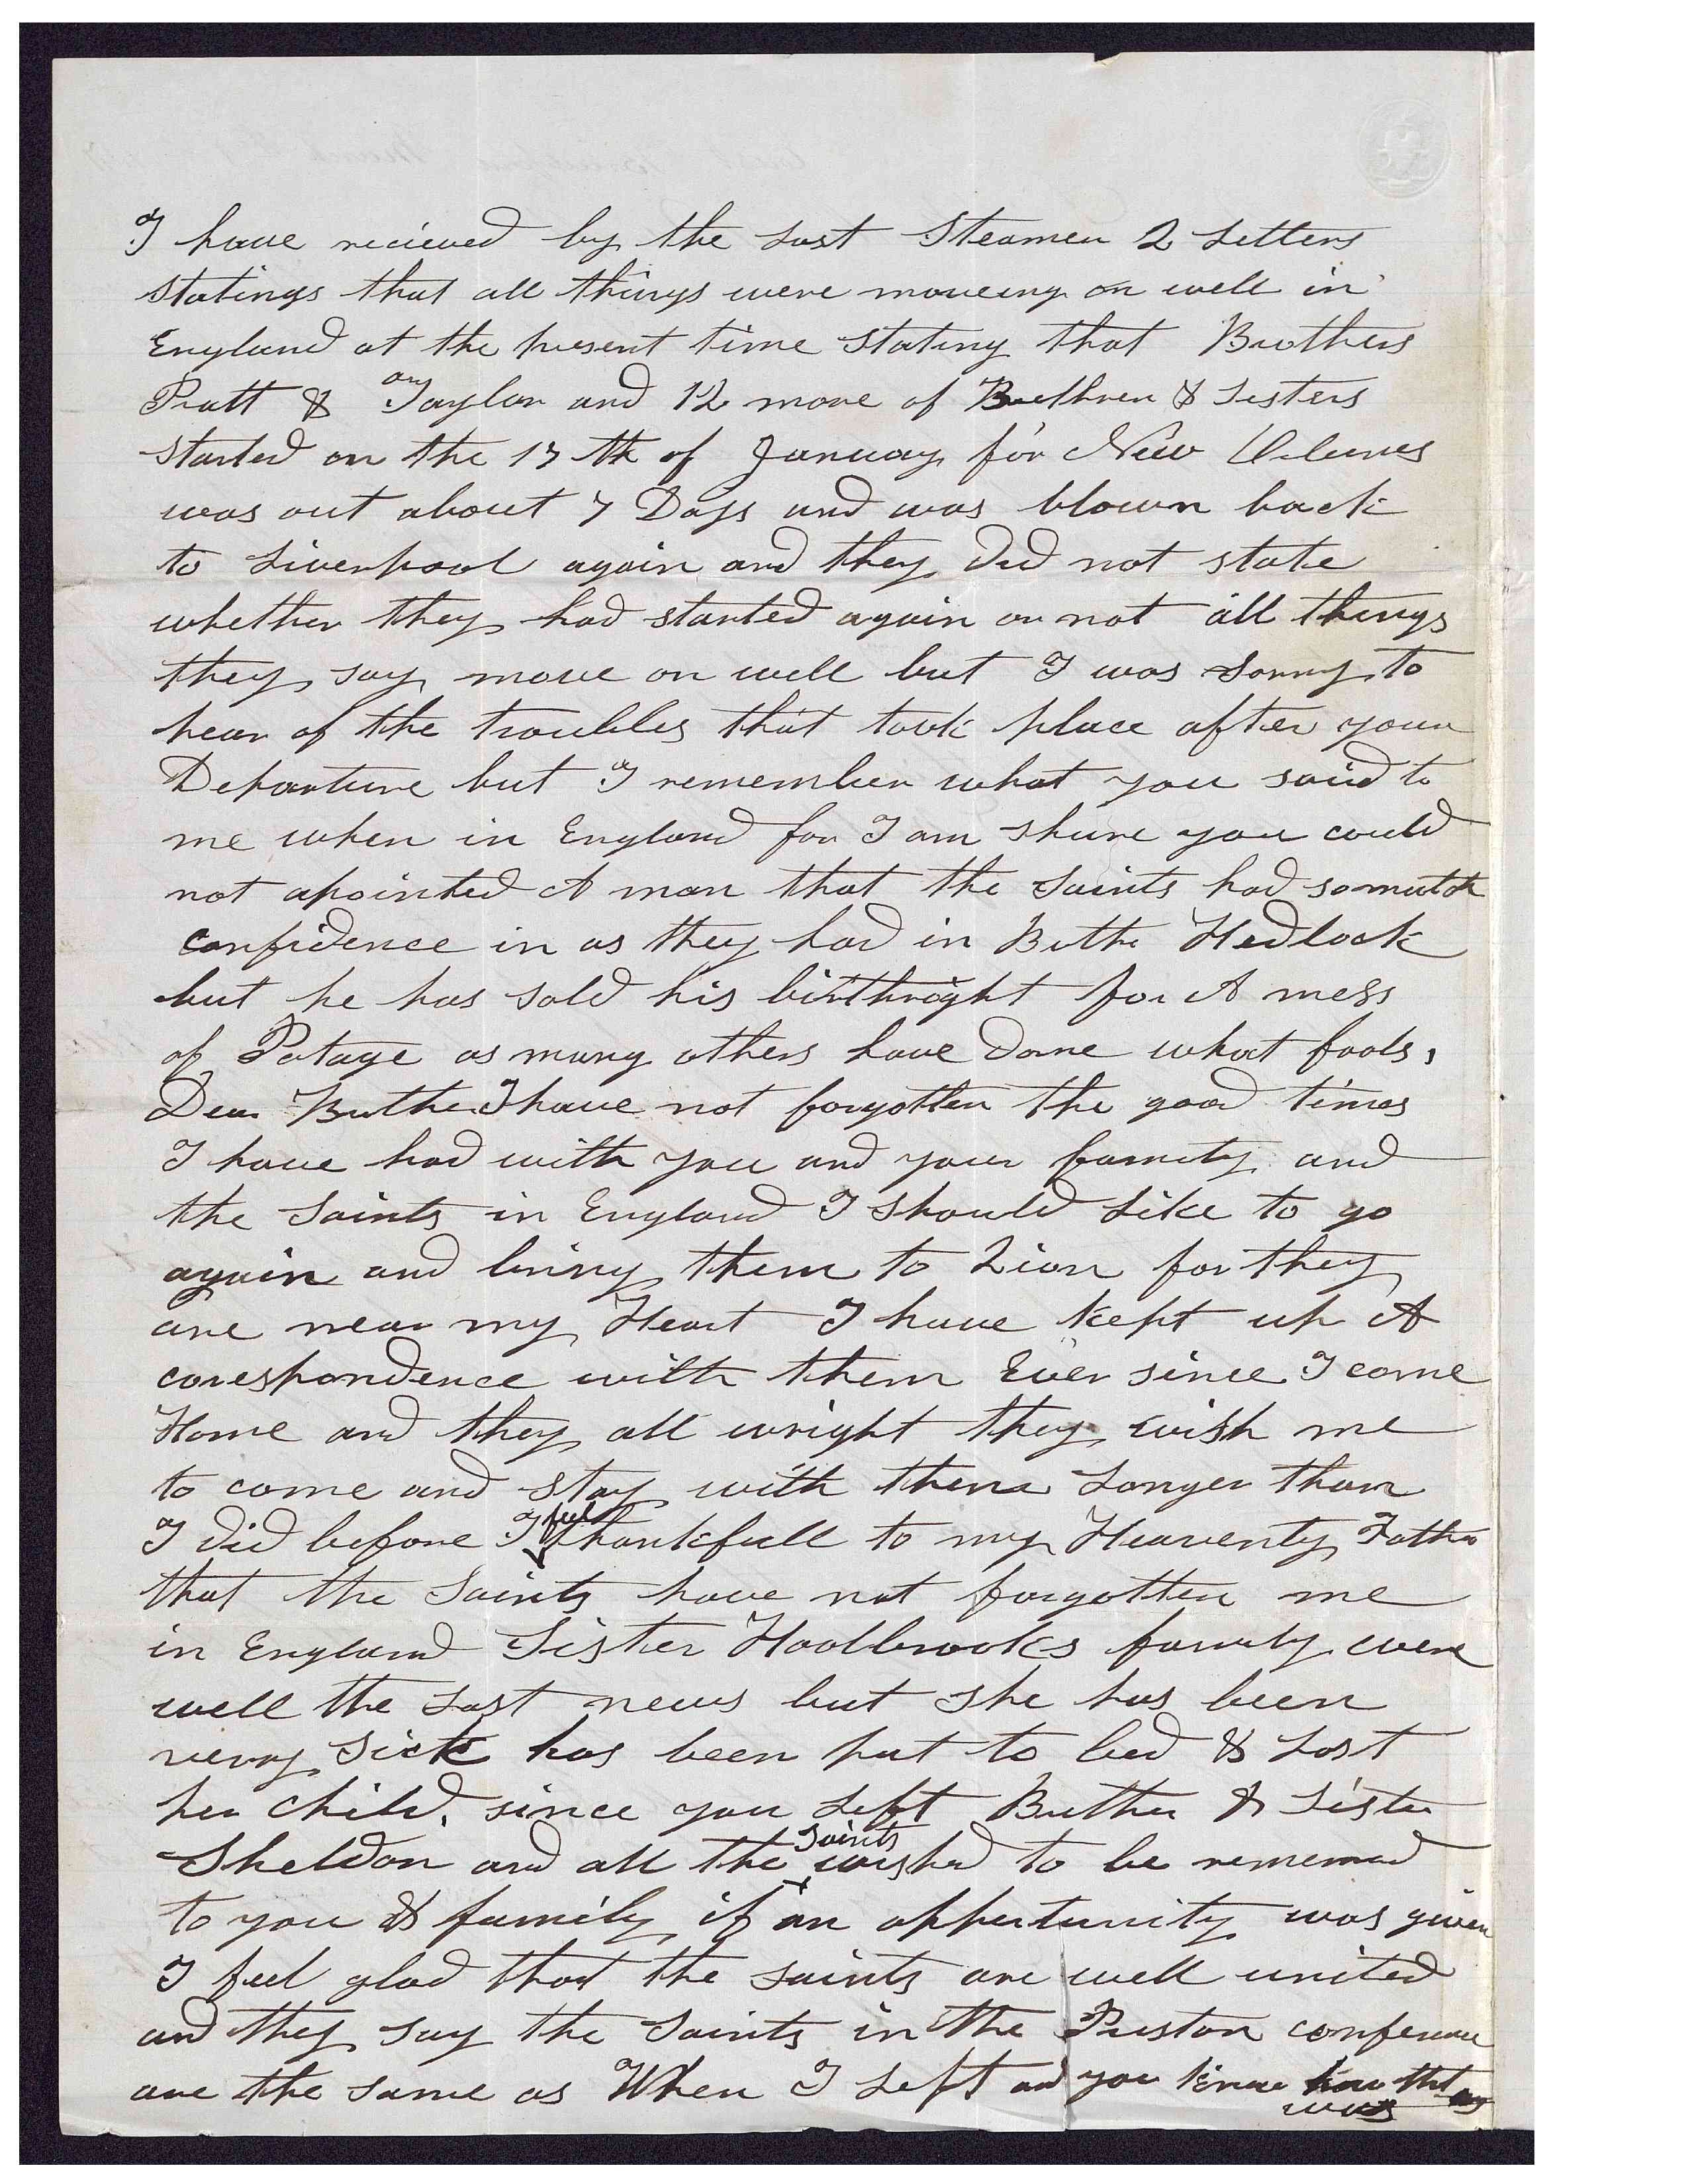 I have recieved by the Last Steamer 2 Letters
statings that all things were moveing on well in
England at the present time stating that Brothers
Pratt & Taylor and 12 more of Brethren & Sisters
started on the 17th of January for New Orleanes
was out about 7 Days and was blown back
to Liverpool again and they did not state
whether they had started again or not all things
they say move on well but I was sorry to
hear of the troubles that took place after your
Departure but I remember what you said to
me when in England for I am shure you could
not apointed A man that the Saints had so mutch
confidence in as they had in Brothe Hedlock
but he has sold his birthright for A mess
of Potage as many others have done what fools,
Dear Brother I have not forgotten the good times
I have had with you and your family and
the Saints in England I should Like to go
again and bring them to Zion for they
are near my Heart I have kept up A
corespondence with them Ever since I come
Home and they all wright they wish me
to come and stay with them Longer than
I did before I feel thankfull to my Heavenly Father
that the Saints have not forgotten me
in England Sister Hoolbrooks family were
well the Last news but she has been
verry sick has been put to bed & Lost
her child, since you Left Brother & Sister
Sheldon and all the Saints wished to be rememed
to you & family if an oppertunity was given
I feel glad that the saints are well united
and they say the Saints in the Preston conference
are the same as When I Left and you know how that
was